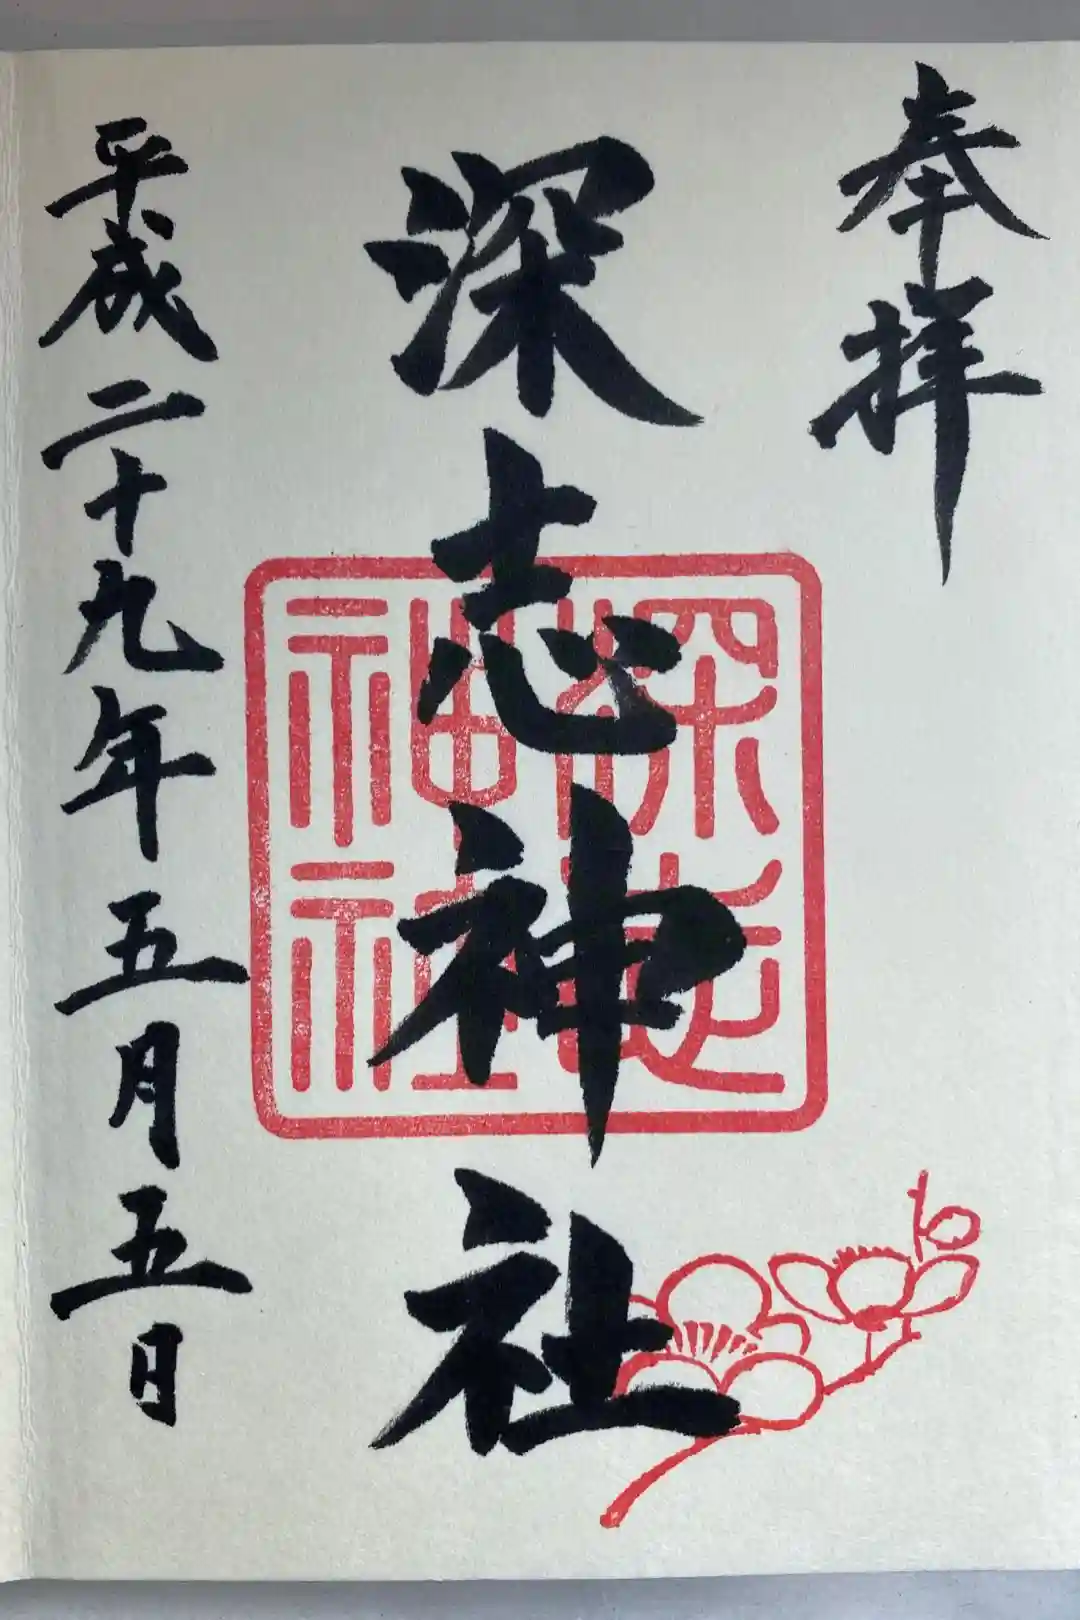 奉拝
深志神社
深志神社
平成二十九年五月五日